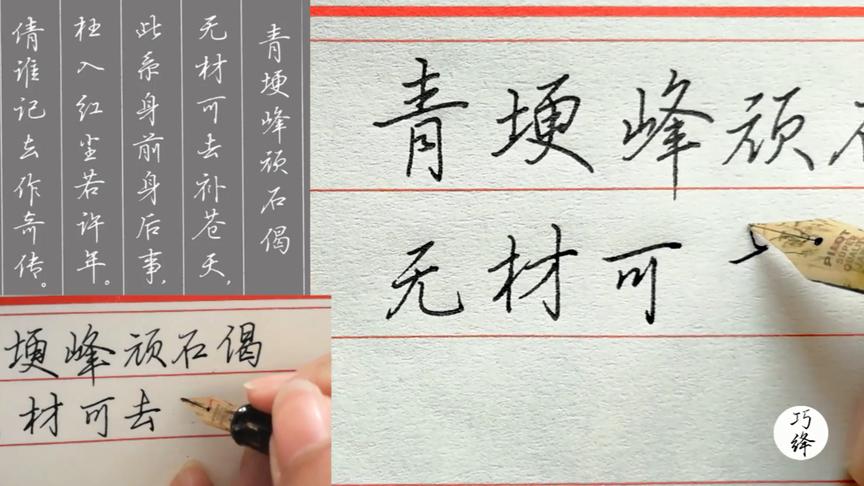 青埂峰顽石偈
无材可去补苍天,
此系身前身后事,
枉入红尘若许年。
倩谁记去作奇传。
青埂峰顽石
无材可
埂峰顽石偈
材可去
PILOT
SUPER